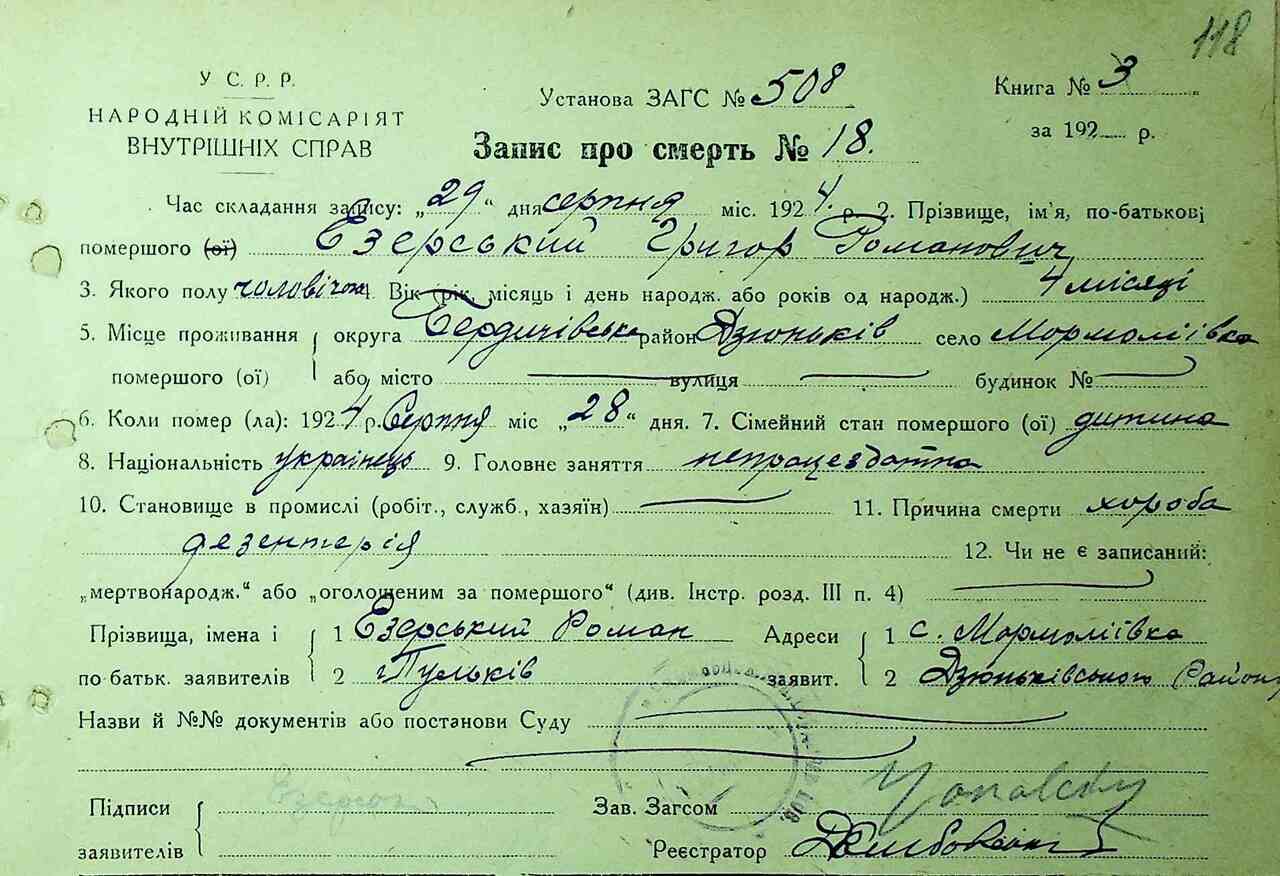 118
У С. Р. Р.
НАРОДНІЙ КОМІСАРІЯТ
ВНУТРІШНІХ СПРАВ
Установа ЗАГС № 508
Книга № 3
за 192 р.
Запис про смерть № 18.
Час складання запису: „29“ дня серпня міс. 1924. р. 2. Прізвище, ім'я, по-батькові
помершого (ої) Езерський Григор Романович
3. Якого полу чоловічої 4. Вік (рік, місяць і день народж. або років од народж.) 4 місяці
5. Місце проживання округа Бердичівська район Дзюньків село Мормоліївка
помершого (ої) або місто вулиця будинок №
6. Коли помер (ла): 1924 р. Серпня міс „28“ дня. 7. Сімейний стан помершого (ої) дитина
8. Національність українець 9. Головне заняття непрацездатна
10. Становище в промислі (робіт., служб., хазяїн) 11. Причина смерти хороба
дезентерія 12. Чи не є записаний:
„мертвонародж.“ або „оголошеним за помершого“ (див. Інстр. розд. III п. 4)
Прізвища, імена і 1 Езерський Роман Адреси 1 с. Мормоліївка
по батьк. заявителів 2 Пульків заявит. 2 Дзюньківського Району
Назви й №№ документів або постанови Суду
Підписи Зав. Загсом
заявителів Реєстратор